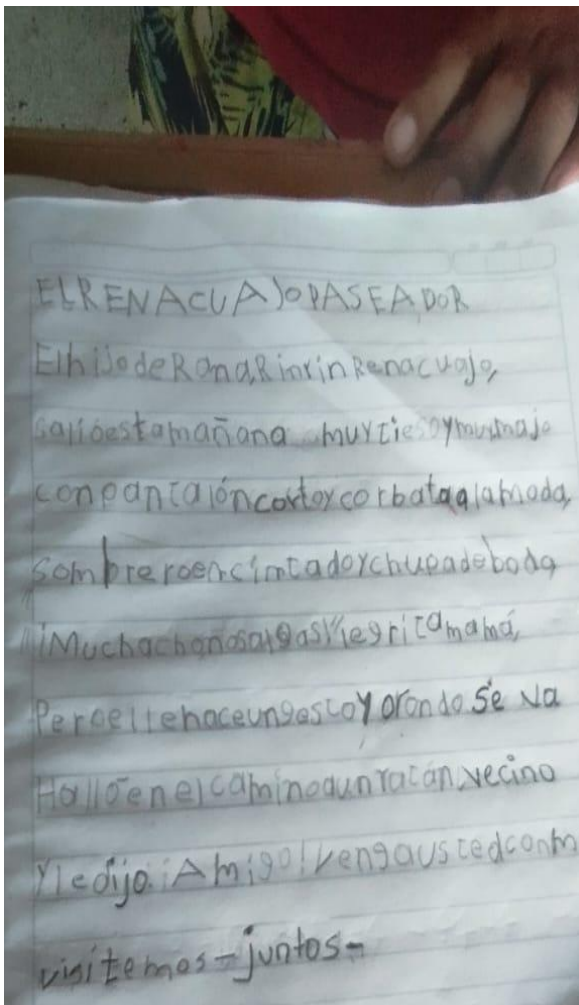 ELRENACUAJOPASEADOR
ElhijodeRanaRinrinRenacuajo,
salióestamañana muytiesoymuymajo
conpantalóncortoycorbataalamoda,
sombreroencintadoychupadeboda
¡Muchachonosalgas!legritamamá,
Peroellehaceungestoyorondo se va
Hallóenelcaminoaunratón,vecino
Yledijo:¡Amigo!vengaustedconm
visitemos-juntos-